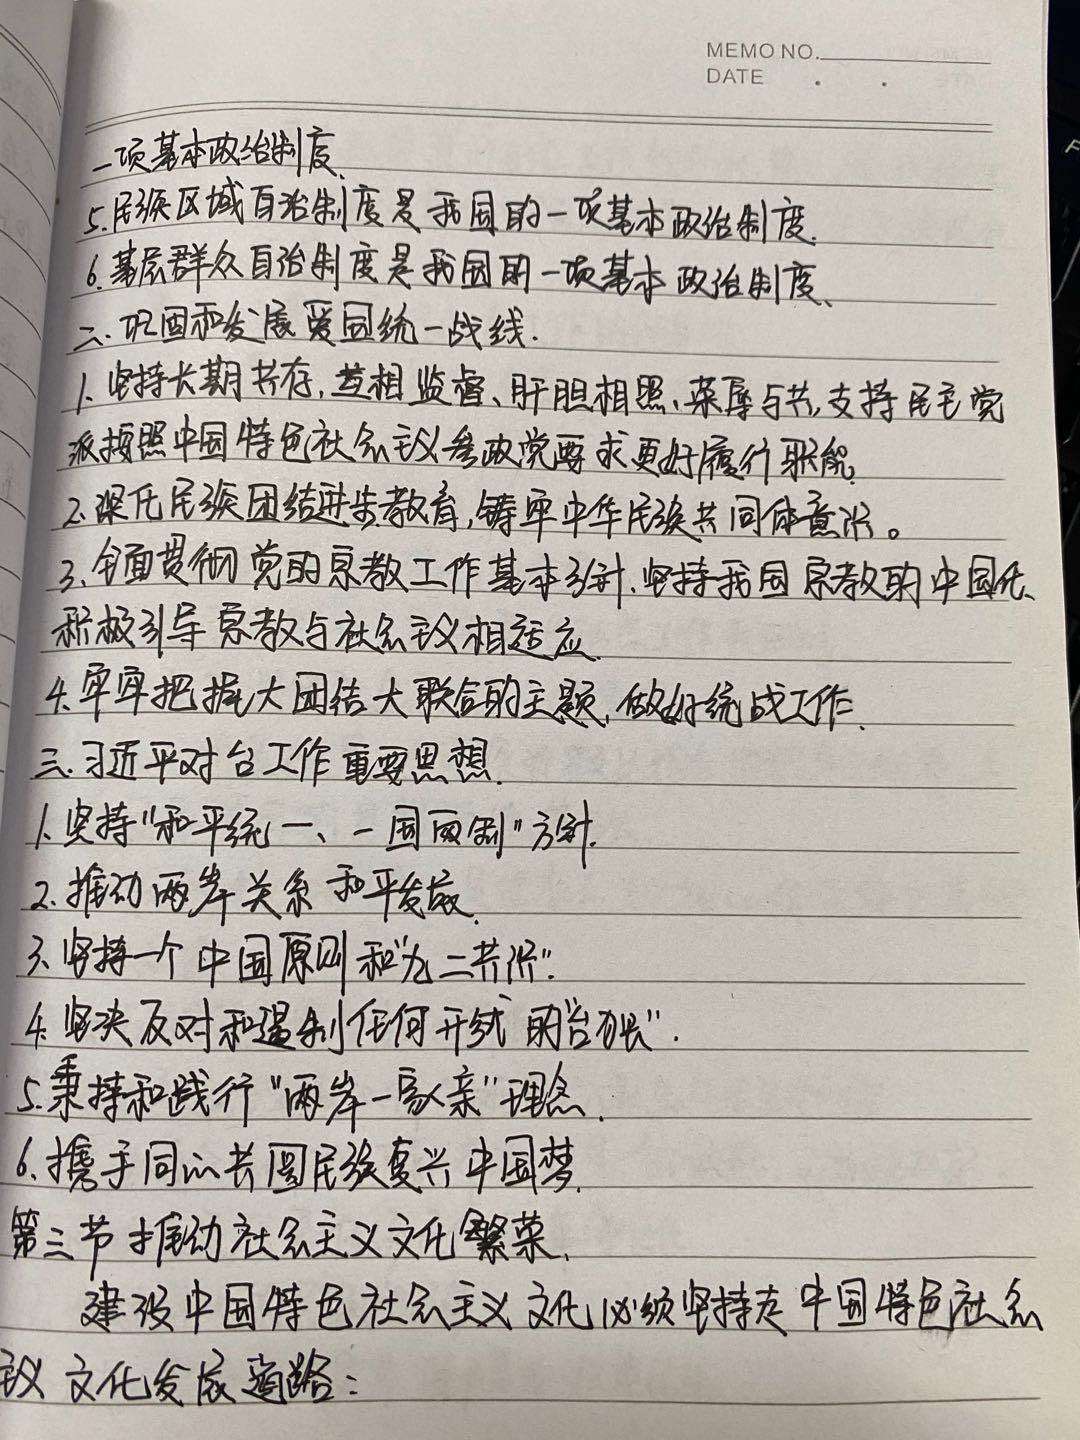 MEMO NO.
DATE . .
一项基本政治制度.
5.民族区域自治制度是我国的一项基本政治制度.
6.基层群众自治制度是我国的一项基本政治制度、
二.巩固和发展爱国统一战线.
1.坚持长期共存,互相监督、肝胆相照、荣辱与共,支持民主党
派按照中国特色社会主义参政党要求更好履行职能.
2.深化民族团结进步教育,铸牢中华民族共同体意识。
3.全面贯彻党的宗教工作基本方针.坚持我国宗教的中国化、
积极引导宗教与社会主义相适应.
4.牢牢把握大团结大联合的主题,做好统战工作.
三.习近平对台工作重要思想.
1.坚持"和平统一、一国两制"方针.
2.推动两岸关系和平发展.
3.坚持一个中国原则和"九二共识".
4.坚决反对和遏制任何形式的"台独".
5.秉持和践行"两岸一家亲"理念.
6.携手同心共圆民族复兴中国梦.
第三节推动社会主义文化繁荣.
建设中国特色社会主义文化必须坚持走中国特色社会
主义文化发展道路: